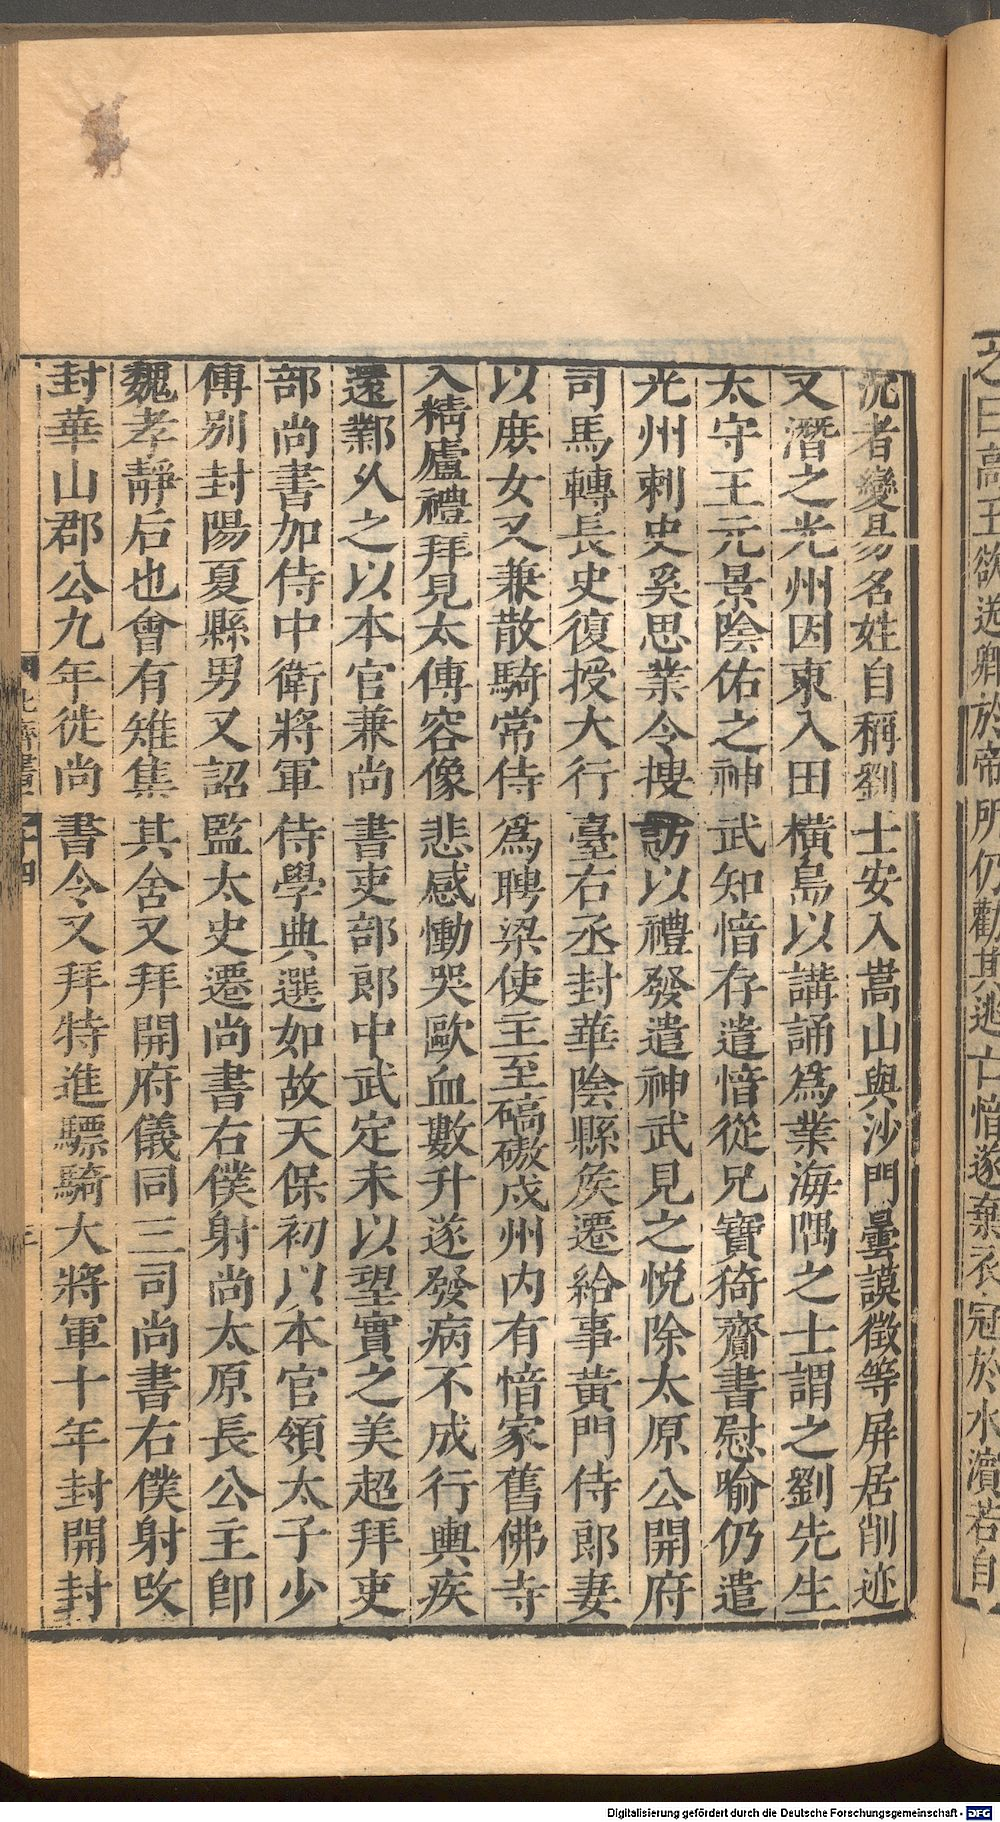 之曰高王欲送卿於帝所仍勸其逃亡愔遂棄衣冠於水濱若自
沉者變易名姓自稱劉士安入嵩山與沙門曇謨徵等屏居削迹
又潛之光州因東入田橫島以講誦爲業海隅之士謂之劉先生
太守王元景陰佑之神武知愔存遣愔從兄寶猗齎書慰喻仍遣
光州刺史奚思業令搜訪以禮發遣神武見之悅除太原公開府
司馬轉長史復授大行臺右丞封華陰縣侯遷給事黃門侍郎妻
以庶女又兼散騎常侍爲聘梁使主至碻磝戍州内有愔家舊佛寺
入精廬禮拜見太傅容像悲感慟哭歐血數升遂發病不成行輿疾
還鄴久之以本官兼尚書吏部郎中武定末以望實之美超拜吏
部尚書加侍中衛將軍侍學典選如故天保初以本官領太子少
傅別封陽夏縣男又詔監太史遷尚書右僕射尚太原長公主即
魏孝靜后也會有雉集其舍又拜開府儀同三司尚書右僕射改
封華山郡公九年徙尚書令又拜特進驃騎大將軍十年封開封
北齊書
四
Digitalisierung gefördert durch die Deutsche Forschungsgemeinschaft - DFG